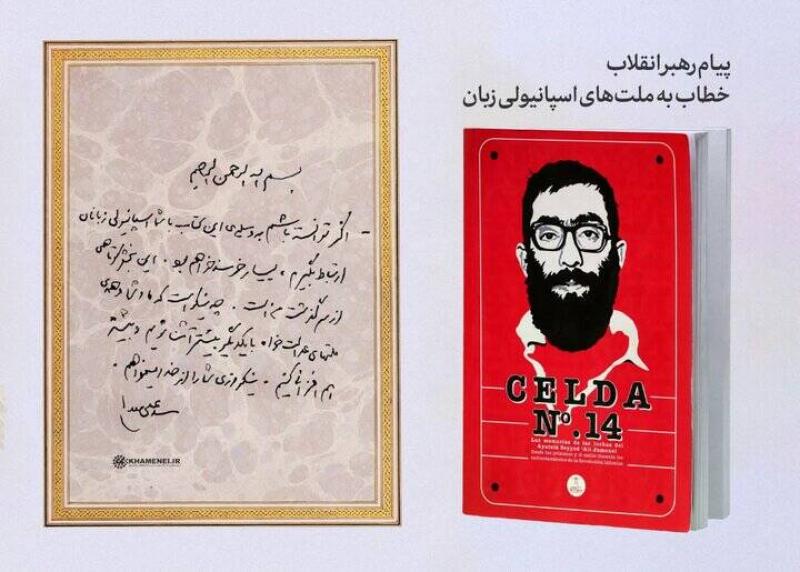 پیام رهبر انقلاب
خطاب به ملت‌های اسپانیولی زبان
بسم الله الرحمن الرحیم
- اگر توانسته باشم به وسیله‌ی این کتاب با شما اسپانیولی زبانان
ارتباط بگیرم، بسیار خرسند خواهم بود. این بخش کوتاهی
از سرگذشت من است. چه نیکو است که ما و شما و همه‌ی
ملتهای عدالت‌خواه با یکدیگر بیشتر آشنا شویم و بیشتر
هم‌افزائی کنیم. نیکروزی شما را از خدا میخواهم.
سید علی
KHAMENEI.IR
CELDA
Nº.14
Las memorias de las luchas del
Ayatolá Seyyed 'Alí Jameneí
Desde las prisiones y el exilio durante los
de la Revolución Islámica